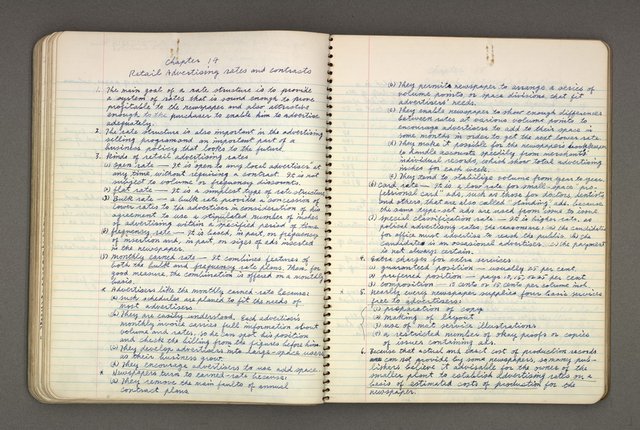 Chapter 19
Retail Advertising rates and contracts
1. The main goal of a rate structure is to provide
a system of rates that is sound enough to prove
profitable to the newspaper and also attractive
enough to the purchaser to enable him to advertise
adequately.
2. The rate structure is also important in the advertising
selling program and an important part of a
business policy that looks to the future.
3. Kinds of retail advertising rates
a) Open rate — It is open to any local advertiser at
any time without requiring a contract. It is not
subject to volume or frequency discounts.
flat rate — It is a simplest type of rate structure
Bulk rate — a bulk rate provides a concession of
lower rates to the advertiser in consideration of his
agreement to use a stipulated number of inches
of advertising within a specified period of time.
frequency rate — It is based, in part, on frequency
of insertion and, in part, on sizes of ads inserted
in the newspaper.
Monthly earned rate — It combines features of
both the bulk and frequency rate plans. Then, for
good measure, the combination is offered on a monthly
basis.
* Advertisers like the monthly earned-rate because:
a) such schedules are planned to fit the needs of
most advertisers.
(b) They are easily understood. Each advertiser's
monthly invoice carries full information about
volume and rates, so he can spot his position
and check the billing from the figures before him
(c) They develop advertisers into large-space users
as their business grow.
(d) They encourage advertisers to use add space.
* Newspapers turn to earned-rate because:
(a) They remove the main faults of annual
contract plans.
(b) They permit a newspaper to arrange a series of
volume points or space divisions, that fit
advertisers' needs.
(c) They enable newspaper to show enough differences
between rates at various volume points to
encourage advertisers to add to their space in
some months in order to get the next lower rate.
(d) They make it possible for the newspapers bookkeeper
to handle accounts speedily from merchants'
individual records, which show total advertising
inches for each week.
(e) They tend to stabilize volume from year to year.
(6) Card rate — It is a low rate for small-space pro-
fessional card ads, such as those for doctors, dentists
and others, that are also called "standing" ads, because
the same type-set ads are used from issue to issue.
(7) Special classification rate — It is higher rate, as
political advertising rates; the reasons are: the candidate
for office must advertise to reach the public; the
candidate is an occasional advertiser; the payment
is not always certain.
4. Extra charges for extra services
(1) guaranteed position — usually 25 per cent
(2) preferred position — pages 10, 15, or 25 per cent
(3) composition — 10 cents or 15 cents per column inch
* 5. Nearly every newspaper supplies four basic services
free to advertisers:
(1) preparation of copy
(2) making of layout
(3) use of mat service illustrations
(4) a restricted number of okay proofs or copies
of issues containing ads.
6. Because that actual and exact cost of production records
can not provide by some newspapers, so many pub-
lishers believe it advisable for the owner of the
smaller plant to establish advertising rates on a
basis of estimated costs of production for the
newspaper.